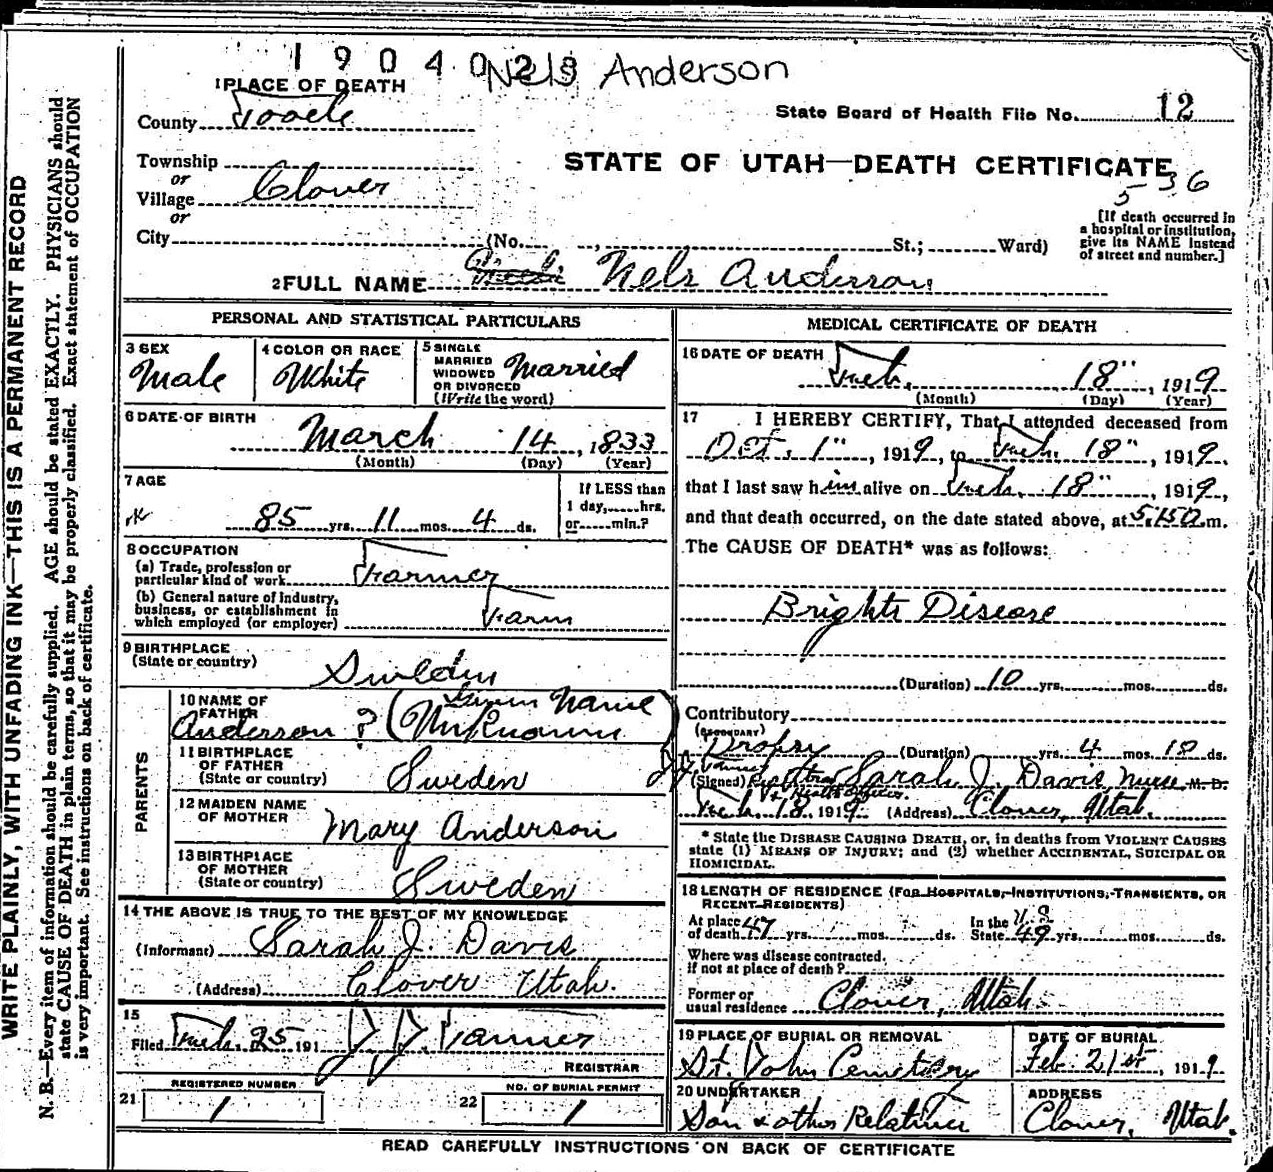 1904028 Nels Anderson
1 PLACE OF DEATH
County Tooele
State Board of Health File No. 12
Township
or
Village Clover
or
City (No. , St.; Ward)
STATE OF UTAH—DEATH CERTIFICATE
536
[If death occurred in
a hospital or institution,
give its NAME instead
of street and number.]
2 FULL NAME Nels Anderson
PERSONAL AND STATISTICAL PARTICULARS
3 SEX
Male
4 COLOR OR RACE
White
5 SINGLE
MARRIED
WIDOWED
OR DIVORCED
(Write the word)
Married
6 DATE OF BIRTH
March 14, 1833
(Month) (Day) (Year)
7 AGE
85 yrs. 11 mos. 4 ds.
If LESS than
1 day, hrs.
or min.?
8 OCCUPATION
(a) Trade, profession or
particular kind of work Farmer
(b) General nature of industry,
business, or establishment in
which employed (or employer) Farm
9 BIRTHPLACE
(State or country)
Sweden
PARENTS
10 NAME OF
FATHER
Anderson ? (Given Name Unknown)
11 BIRTHPLACE
OF FATHER
(State or country) Sweden
12 MAIDEN NAME
OF MOTHER
Mary Anderson
13 BIRTHPLACE
OF MOTHER
(State or country) Sweden
14 THE ABOVE IS TRUE TO THE BEST OF MY KNOWLEDGE
(Informant) Sarah J. Davis
(Address) Clover Utah.
15
Filed Feb. 25 191 J. J. Tanner
REGISTRAR
REGISTERED NUMBER
21 1
NO. OF BURIAL PERMIT
22 1
MEDICAL CERTIFICATE OF DEATH
16 DATE OF DEATH
Feb. 18", 1919
(Month) (Day) (Year)
17 I HEREBY CERTIFY, That I attended deceased from
Oct. 1", 1919, to Feb. 18", 1919.
that I last saw him alive on Feb. 18", 1919,
and that death occurred, on the date stated above, at m.
The CAUSE OF DEATH* was as follows:
Brights Disease
(Duration) 10 yrs. mos. ds.
Contributory
(SECONDARY)
Dropsy (Duration) yrs. 4 mos. 18 ds.
(Signed) Sarah J. Davis Nurse M. D.
Feb 18, 1919 (Address) Clover, Utah.
* State the DISEASE CAUSING DEATH, or, in deaths from VIOLENT CAUSES
state (1) MEANS OF INJURY; and (2) whether ACCIDENTAL, SUICIDAL OR
HOMICIDAL.
18 LENGTH OF RESIDENCE (FOR HOSPITALS, INSTITUTIONS, TRANSIENTS, OR
RECENT RESIDENTS)
At place
of death 47 yrs. mos. ds.
In the U.S.
State 49 yrs. mos. ds.
Where was disease contracted,
if not at place of death?
Former or
usual residence Clover, Utah
19 PLACE OF BURIAL OR REMOVAL
St. John Cemetery
DATE OF BURIAL
Feb. 21st, 1919
20 UNDERTAKER
Son & other Relative
ADDRESS
Clover, Utah.
READ CAREFULLY INSTRUCTIONS ON BACK OF CERTIFICATE
WRITE PLAINLY, WITH UNFADING INK—THIS IS A PERMANENT RECORD
N. B.—Every item of information should be carefully supplied. AGE should be stated EXACTLY. PHYSICIANS should
state CAUSE OF DEATH in plain terms, so that it may be properly classified. Exact statement of OCCUPATION
is very important. See instructions on back of certificate.